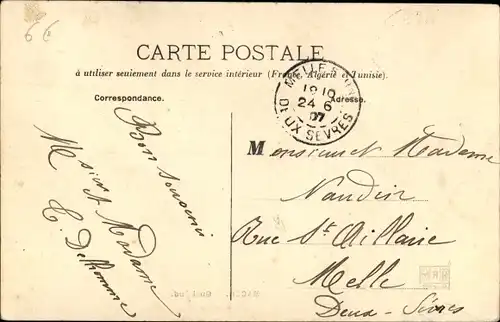 6€
CARTE POSTALE
à utiliser seulement dans le service intérieur (France, Algérie et Tunisie).
Correspondance.
Adresse.
MELLE
18 10
24 6
07
DEUX SEVRES
Bon souvenir
Mr et Madame
Delhomme
Monsieur et Madame
Naudin
Rue St Hillaire
Melle
Deux-Sèvres